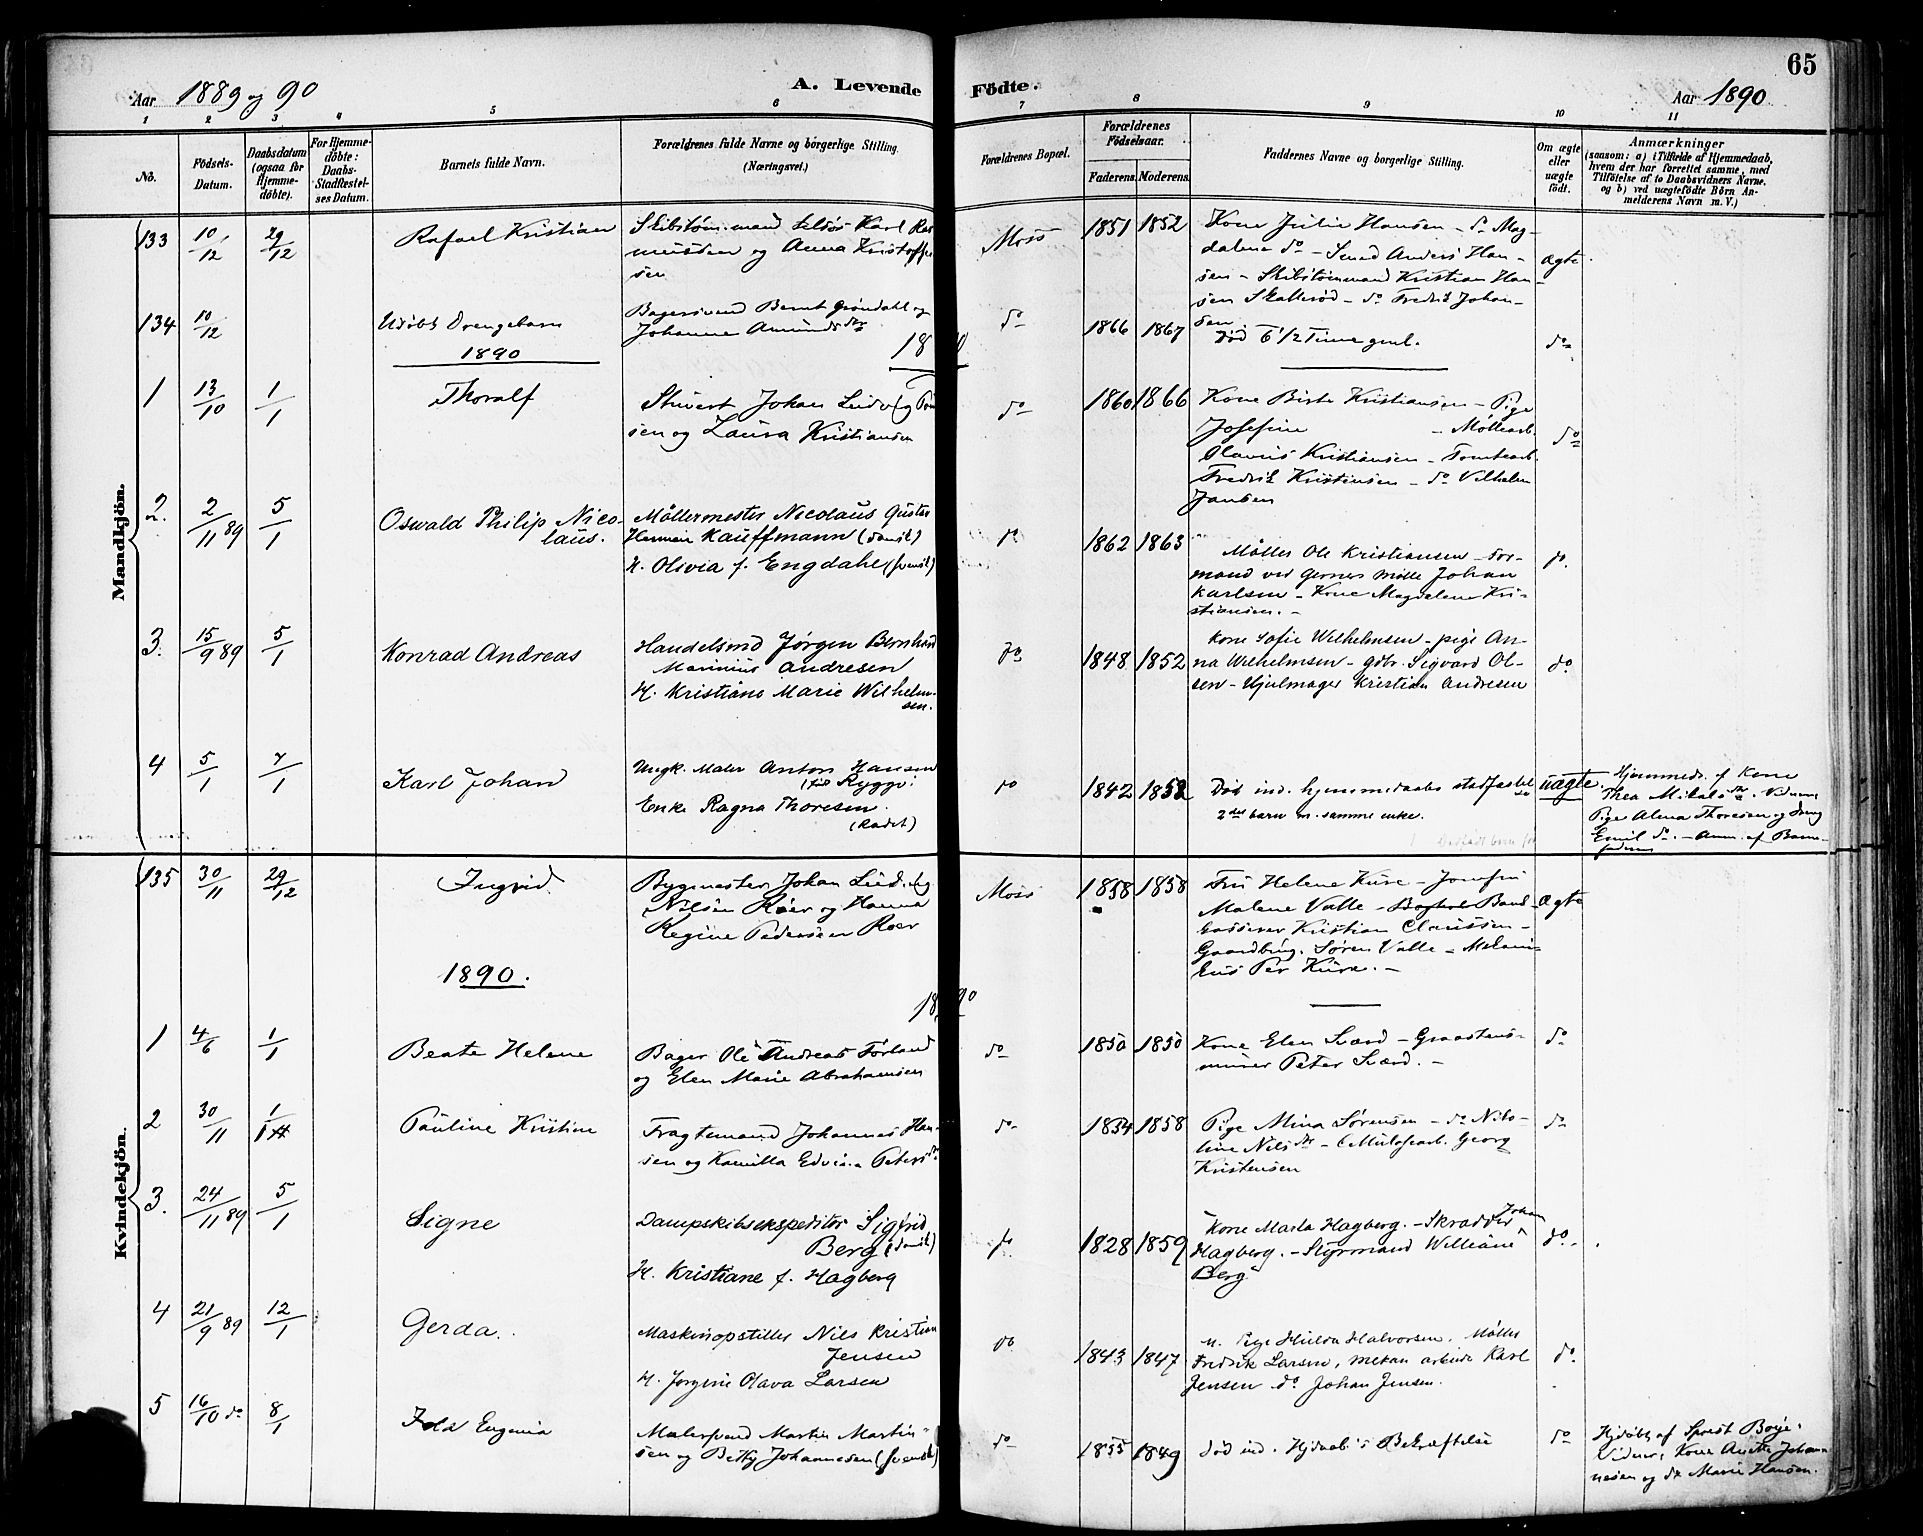 65
Aar 1889 og 90
A. Levende Fødte.
Aar 1890
1 2 3 4 5 6 7 8 9 10 11
No.
Födsels-
Datum.
Daabsdatum
(ogsaa for
Hjemme-
döbte).
For Hjemme-
döbte:
Daabs-
Stadfæstel-
ses Datum.
Barnets fulde Navn.
Forældrenes fulde Navne og borgerlige Stilling.
(Næringsvei.)
Forældrenes Bopæl.
Forældrenes
Födselsaar.
Faderens. Moderens.
Faddernes Navne og borgerlige Stilling.
Om ægte
eller
uægte
födt.
Anmærkninger
(saasom: a) i Tilfælde af Hjemmedaab,
hvem der har forrettet samme, med
Tilföielse af to Daabsvidners Navne,
og b) ved uægtefödte Börn An-
melderens Navn m. V.)
Mandkjön.
133 10/12 29/12 Rafael Kristian
Skibstømmermand Karl Ras
mussen og Anna Kristoffer
sen
Moss 1851 1852
Kone Julie Hansen - do Mag-
dalena do - Smed Anders Han-
sen - Skibstømmand Kristian Han-
sen Skallerød - do Fredrik Johan-
sen
ægte
134 10/12 Udøbt Drengebarn
Bagersvend Bernt Grøndahl og
Johanne Amundsdtr
do 1866 1867
død 6 1/2 Time gml.
do
1890
1890
1 13/10 1/1 Thoralf
Stuert Johan Ludvig
sen og Laura Kristiansen
do 1860 1866
Kone Birte Kristiansen - Pige
Josefine - Møllearb.
Olavus Kristiansen - Tomtearb.
Fredrik Kristensen - do Vilhelm
Jansen
do
2. 2/11 89 5/1 Oswald Philip Nico-
laus.
Møllermester Nicolaus Gustav
Herman Kauffmann (dansk)
H. Olivia f. Engdahl (svensk)
do 1862 1863
Møller Ole Kristiansen - For-
mand ved Gernes Mølle Johan
Karlsen - Kone Magdalene Kri-
stiansen. -
do.
3. 15/9 89 5/1 Konrad Andreas
Handelsmd Jørgen Bernhard
Marinius Andresen
H. Kristiane Marie Wilhelm-
sen.
do 1848 1852
Kone Sofie Wilhelmsen - pige An-
na Wilhelmsen - gdbr. Sigvard Ol-
sen - Hjulmager Kristian Andresen
do.
4 5/1 7/1 Karl Johan
Ungk. Maler Anton Hansen
(til Rygge)
Enke Ragna Thoresen.
(Radet)
do 1842 1852
Død ind. hjemmedaabs stadfæstelse
2det barn m. samme enke.
uægte.
Hjemmed. af Kone
Thea Mikalsdtr. Vidnerne
Pige Alma Thoresen og Dreng
Emil do. - Anm. af Barne-
faderen
Kvindekjön.
135 30/11 29/12 Ingrid.
Bygmester Johan Ludvig
Nilsen Röer og Hanna
Regine Pedersen Roer
Moss 1858 1858
Fru Helene Kure - Jomfru
Malene Valle - Bank-
kasserer Kristian Claussen -
Gaardbrug. Søren Valle - Mekani-
kus Per Kure. -
ægte
1890.
1890
1 4/6 1/1 Beate Helene
Bager Ole Andreas Førland
og Elen Marie Abrahamsen
do 1850 1850
Kone Elen Sværd - Graastens-
murer Peter Sværd. -
do
2 30/11 1/1 Pauline Kristine
Fragtemand Johannes Han-
sen og Kamilla Edvine Petersdtr
do 1834 1858
Pige Mina Sørensen - do Nils-
line Nilsdtr - Georg
Kristensen
do
3. 24/11 89 5/1 Signe
Dampskibsekspeditør Sigfrid
Berg (dansk)
H. Kristiane f. Hagberg
do 1828 1859
Kone Marta Hagberg. - Skrædder Johan
Hagberg. - Styrmand William
Berg
do.
4 21/9 89 12/1 Gerda.
Maskinopstiller Nils Kristian
Jensen
H. Jørgine Olava Larsen
do 1843 1847
M. Pige Hulda Halvorsen. Møller
Fredrik Larsen, mekan arbeider Karl
Jensen do Johan Jensen.
do.
5 16/10 do 8/1 Eugenia
Malersvend Martin Martin-
sen og Betty Johannesen (svensk)
do 1855 1849
død ind. Hjdaab's Bekræftelse
do
Hjdøbt af Sprest Boye.
Vidner, Kone Anette Johan-
nesen og do Marie Hansen.